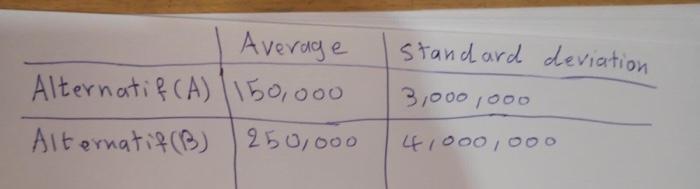 Average Standard deviation
Alternatif(A) 150,000 3,000,000
Alternatif(B) 250,000 4,000,000